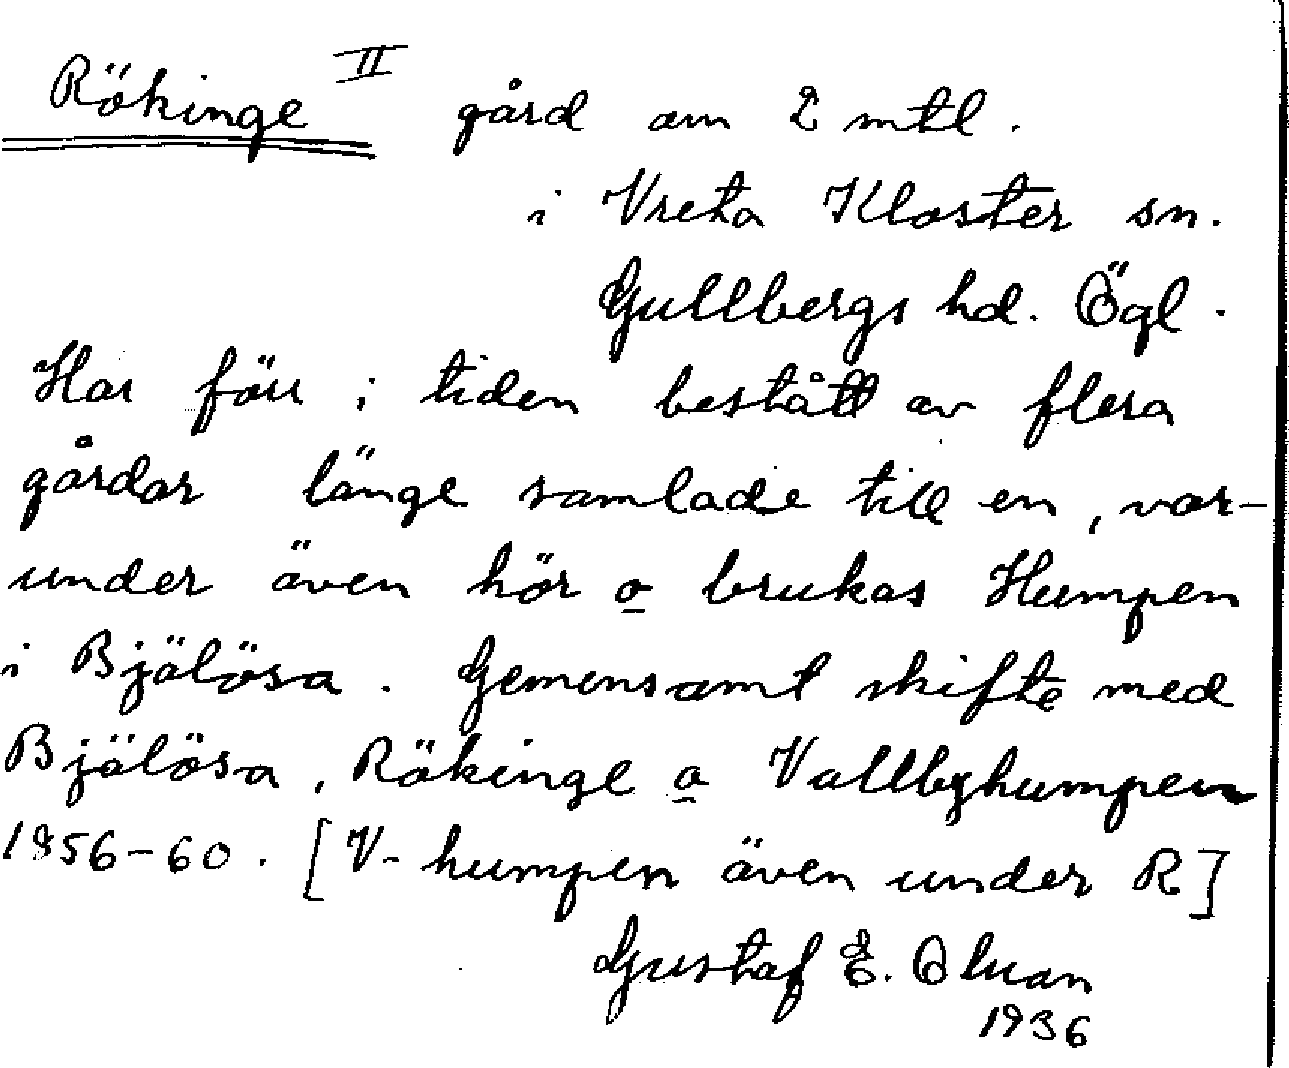 Rökinge II gård om 2 mtl.
i Vreta Kloster sn.
Gullbergs hd. Ögl.
Har förr i tiden bestått av flera
gårdar länge samlade till en, var-
under även hör o brukas Humpen
i Bjälösa. Gemensamt skifte med
Bjälösa, Rökinge o Vallbyhumpen
1856-60. [V-humpen även under R]
Gustaf E.
1936